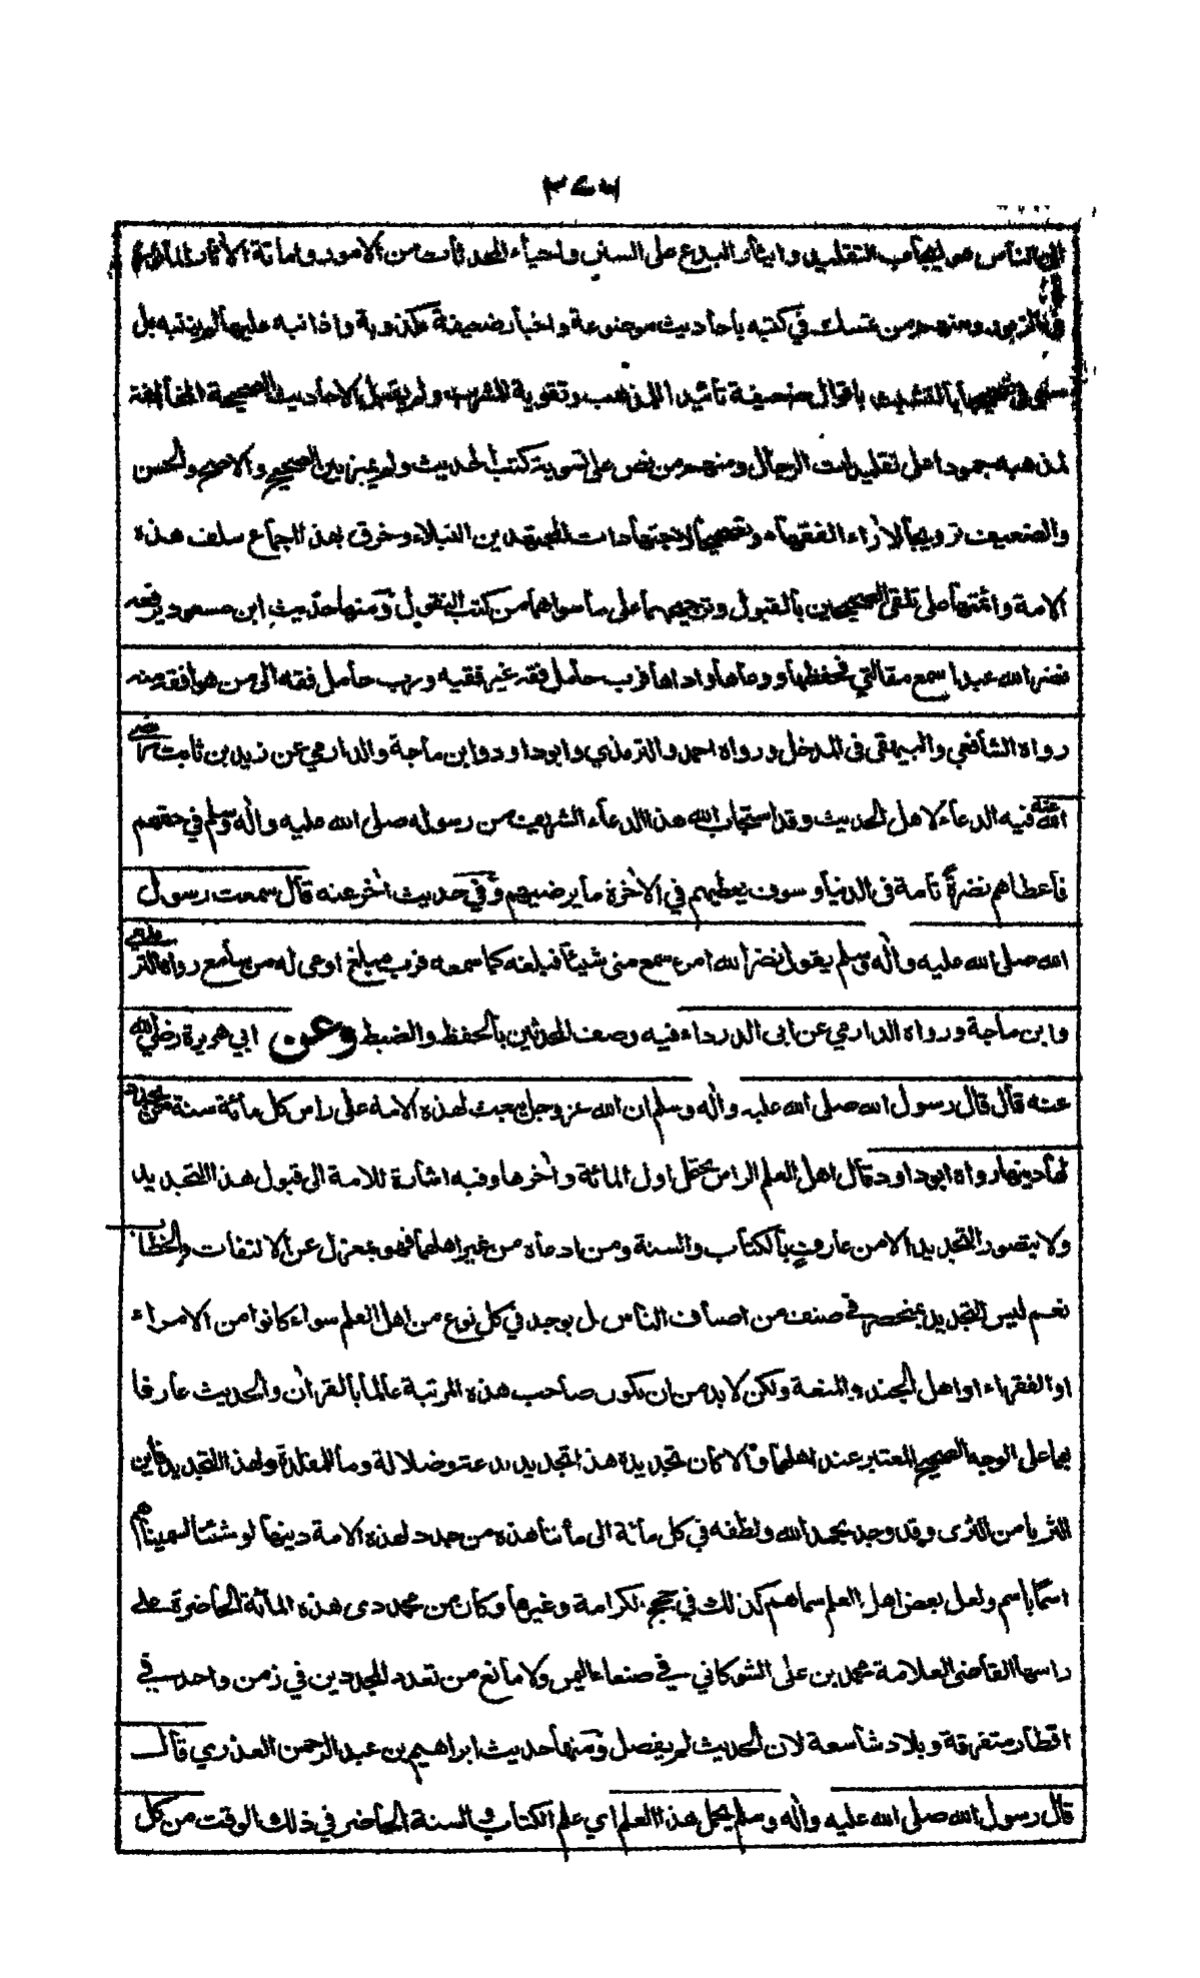 ٣٧٦
الناس هو ايجاب التقليد وايثار البدع على السنن واحياء المحدثات من الامور واماتة الأثار
ومنهم من تمسك في كتبه بأحاديث موضوعة واخبار ضعيفة مكذوبة واذا نبه عليها لم يتنبه بل
بالتشبث باقوال ضعيفة تأئيدا للمذهب وتقوية للمشرب ولم يقبل الاحاديث الصحيحة المخالفة
لمذهبه جمودا على تقليدات الرجال ومنهم من نص على تسوية كتب الحديث ولم يميز بين الصحيح والاصح والحسن
والضعيف ترويجا لأراء الفقهاء وتصحيحا لاجتهادات المجتهدين النبلاء وخرق بهذا اجماع سلف هذه
الامة وائمتها على تلقى الصحيحين بالقبول وترجيحهما على ما سواهما من كتب النقول ومنها حديث ابن مسعود يرفعه
نضر الله عبدا سمع مقالتي فحفظها ووعاها واداها فرب حامل فقه غير فقيه ورب حامل فقه الى من هو افقه منه
رواه الشافعي والبيهقى فى المدخل ورواه احمد والترمذي وابو داود وابن ماجة والدارمي عن زيد بن ثابت رضي
الله عنه فيه الدعاء لاهل الحديث وقد استجاب الله هذا الدعاء الشريف من رسوله صلى الله عليه واله وسلم في حقهم
فأعطاهم نضرة تامة فى الدنيا وسوف يعطيهم في الأخرة ما يرضيهم وفي حديث أخر عنه قال سمعت رسول
الله صلى الله عليه واله وسلم يقول نضر الله امرء سمع منى شيئا فبلغه كما سمعه فرب مبلغ اوعى له من سامع رواه الترمذي
وابن ماجة ورواه الدارمي عن ابى الدرداء فيه وصف المحدثين بالحفظ والضبط وعن ابي هريرة رضي الله
عنه قال قال رسول الله صلى الله عليه واله وسلم ان الله عز وجل يبعث لهذه الامة على راس كل مائة سنة من يجدد
لها دينها رواه ابو داود قال اهل العلم الراس يحتمل اول المائة وأخرها وفيه اشارة للامة الى قبول هذا التجديد
ولا يتصور التجديد الا من عارف بالكتاب والسنة ومن ادعاه من غير اهلهما فهو بمعزل عن الالتفات والخطاب
نعم ليس التجديد بمنحصر في صنف من اصناف الناس بل يوجد في كل نوع من اهل العلم سواء كانوا من الامراء
او الفقراء او اهل الجند والمنعة ولكن لا بد من ان يكون صاحب هذه المرتبة عالما بالقرأن والحديث عارفا
بهما على الوجه الصحيح المعتبر عند اهلهما والا كان تجديده هذا تجديد بدعة وضلالة وما للمقلدة ولهذا التجديد فأين
الثريا من الثرى وقد وجد بحمد الله ولطفه في كل مائة الى مائتنا هذه من جدد لهذه الامة دينها لو شئنا لسميناهم
اسما باسم ولعل بعض اهل العلم سماهم كذلك في حجج الكرامة وغيرها وكان من مجددى هذه المائة الحاضرة على
راسها القاضى العلامة محمد بن على الشوكاني في صنعاء اليمن ولا مانع من تعدد المجددين في زمن واحد في
اقطار متفرقة وبلاد شأسعة لان الحديث لم يفصل ومنها حديث ابراهيم بن عبد الرحمن العذري قال
قال رسول الله صلى الله عليه واله وسلم يحمل هذا العلم اي علم الكتاب والسنة الحاضر في ذلك الوقت من كل